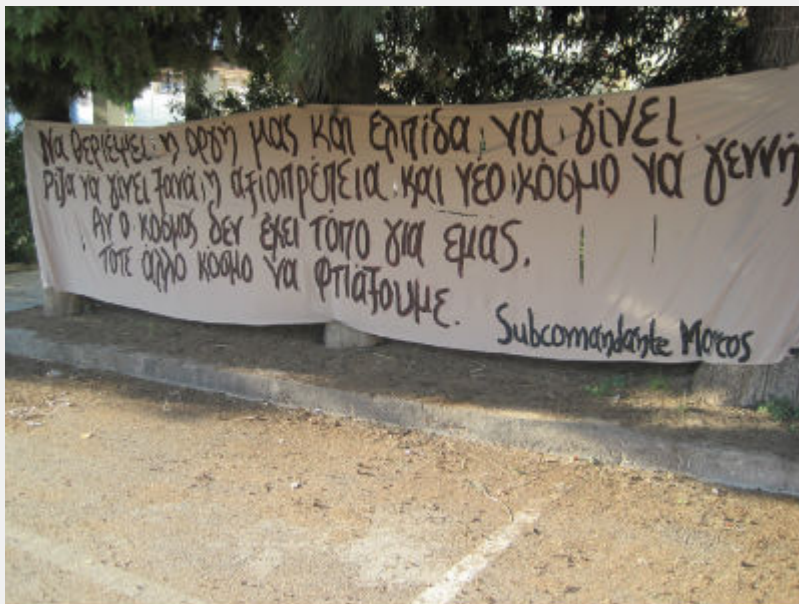 Να θεριέψει η οργή μας και ελπίδα να γίνει
Ρίζα να γίνει ξανά η αξιοπρέπεια και νέο κόσμο να γεννή
Αν ο κόσμος δεν έχει τόπο για εμας.
Τότε άλλο κόσμο να φτιάξουμε.
Subcomandante Marcos